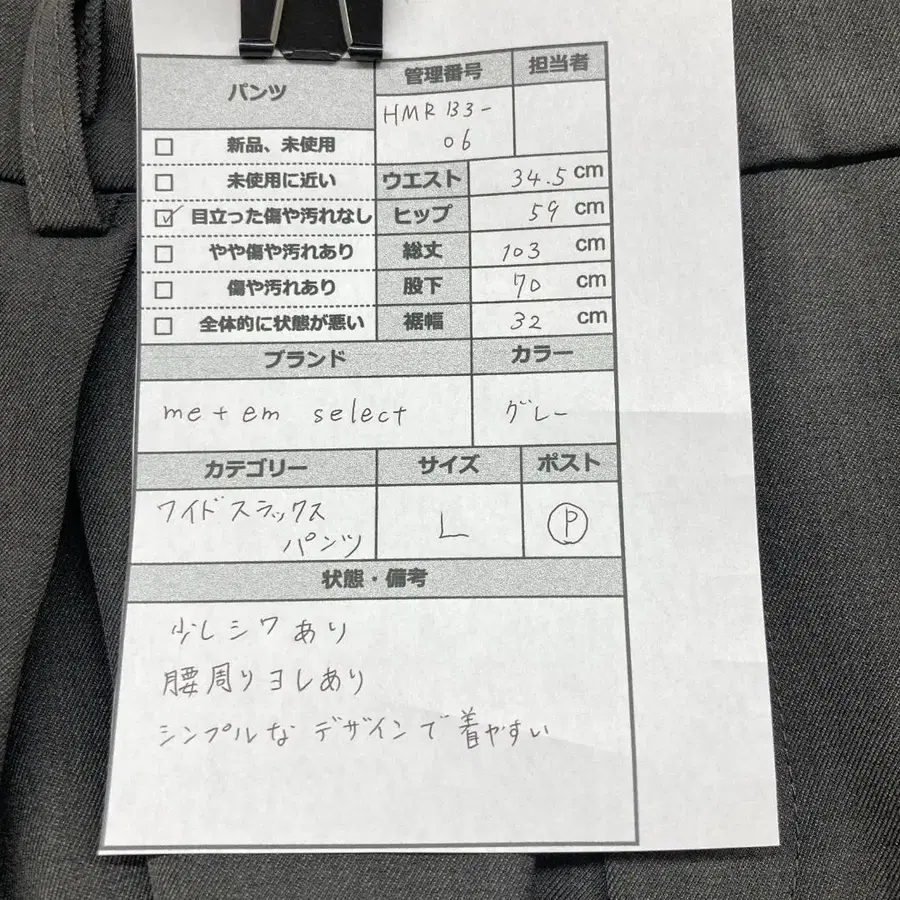 パンツ
管理番号
担当者
HMR133-
06
□ 新品、未使用
□ 未使用に近い
☑ 目立った傷や汚れなし
□ やや傷や汚れあり
□ 傷や汚れあり
□ 全体的に状態が悪い
ウエスト 34.5 cm
ヒップ 59 cm
総丈 103 cm
股下 70 cm
裾幅 32 cm
ブランド
カラー
me+em select
グレー
カテゴリー
サイズ
ポスト
ワイドスラックス
パンツ
L
Ⓟ
状態・備考
少しシワあり
腰周りヨレあり
シンプルなデザインで着やすい